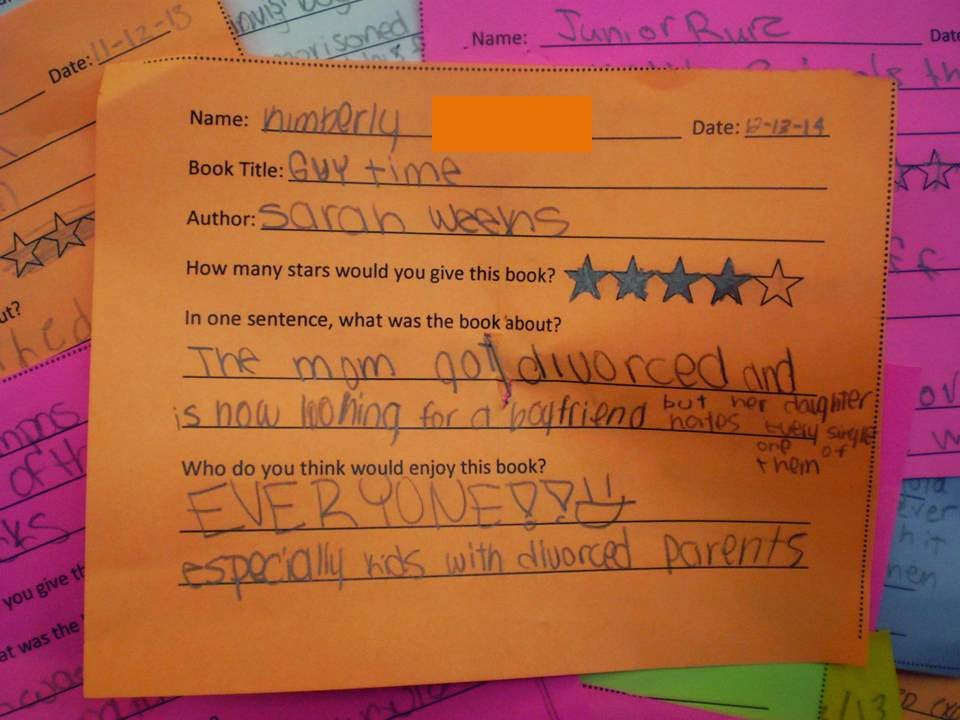 Date: 11-12-13
Name: Junior Ruiz Date
Name: Kimberly Date: 12-13-14
Book Title: Guy time
Author: Sarah Weeks
How many stars would you give this book?
In one sentence, what was the book about?
The mom got divorced and
is now looking for a boyfriend but her daughter
hates every single
one of
them
Who do you think would enjoy this book?
EVERYONE!!
especially kids with divorced parents
ut?
of th
you give th
at was the
ever